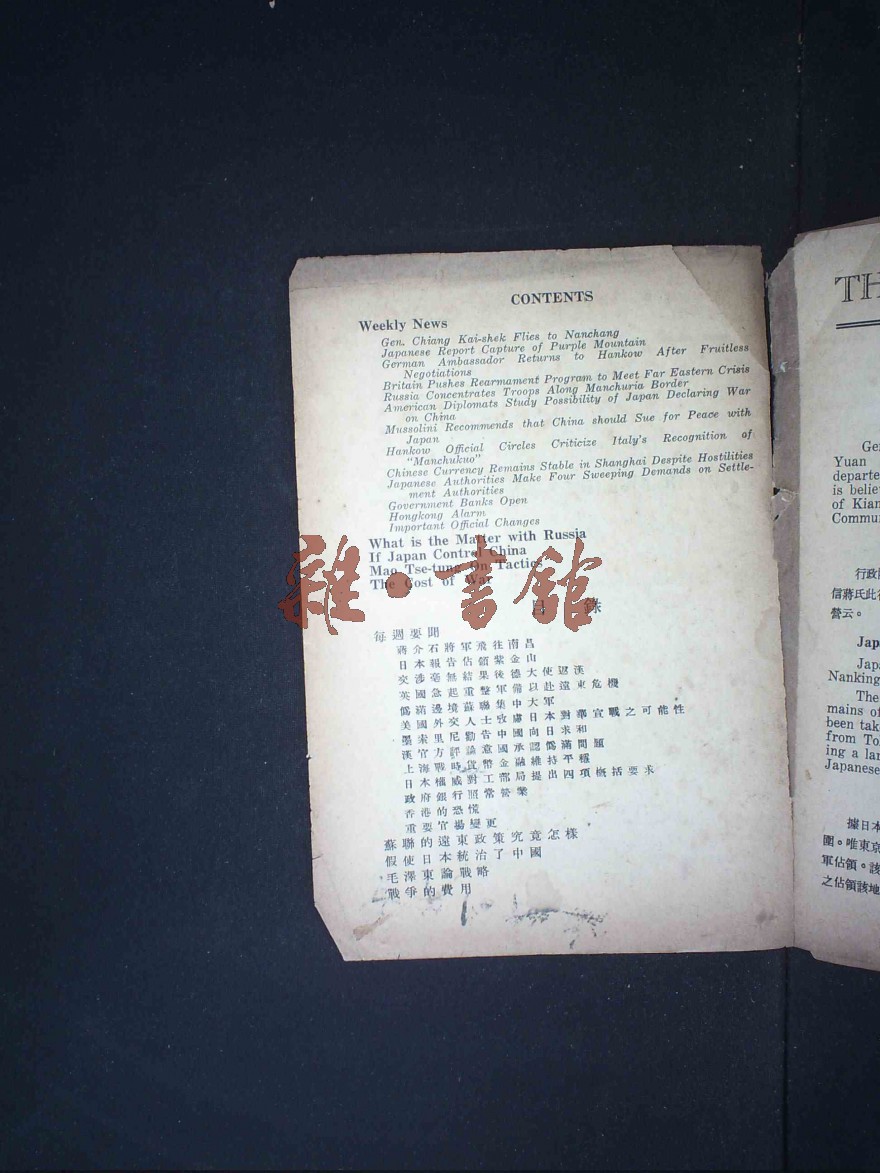 CONTENTS
Weekly News
Gen. Chiang Kai-shek Flies to Nanchang
Japanese Report Capture of Purple Mountain
German Ambassador Returns to Hankow After Fruitless
Negotiations
Britain Pushes Rearmament Program to Meet Far Eastern Crisis
Russia Concentrates Troops Along Manchuria Border
American Diplomats Study Possibility of Japan Declaring War
on China
Mussolini Recommends that China should Sue for Peace with
Japan
Hankow Official Circles Criticize Italy's Recognition of
"Manchukuo"
Chinese Currency Remains Stable in Shanghai Despite Hostilities
Japanese Authorities Make Four Sweeping Demands on Settle-
ment Authorities
Government Banks Open
Hongkong Alarm
Important Official Changes
What is the Matter with Russia
If Japan Control China
Mao Tse-tung On Tactics
The Cost of War
雜·書館
目錄
每週要聞
蔣介石將軍飛往南昌
日本報告佔領紫金山
交涉毫無結果後德大使返漢
英國急起重整軍備以赴遠東危機
僞滿邊境蘇聯集中大軍
美國外交人士攷慮日本對華宣戰之可能性
墨索里尼勸告中國向日求和
漢官方評論意國承認僞滿問題
上海戰時貨幣金融維持平穩
日本權威對工部局提出四項概括要求
政府銀行照常營業
香港的恐慌
重要官場變更
蘇聯的遠東政策究竟怎樣
假使日本統治了中國
毛澤東論戰略
戰爭的費用
TH
Ge
Yuan
departe
is belie
of Kian
Commu
行政
信蔣氏此
營云。
Jap
Japa
Nanking
The
mains of
been tak
from To
ing a lar
Japanese
據日本
圍。唯東京
軍佔領。該
之佔領該地